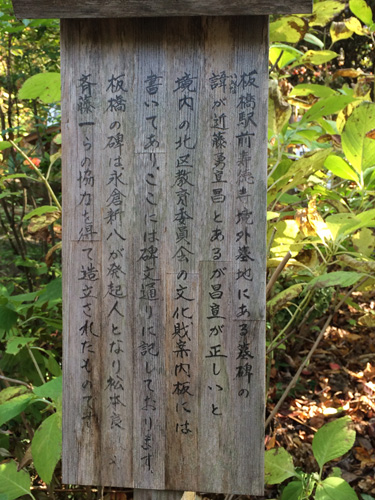 板橋駅前寿徳寺境外墓地にある墓碑の
諱が近藤勇宜昌とあるが昌宜が正しいと
いみな
境内の北区教育委員会の文化財案内板には
書いてあり、ここには碑文通りに記しております。
板橋の碑は永倉新八が発起人となり松本良
斉藤一らの協力を得て造立されたものです